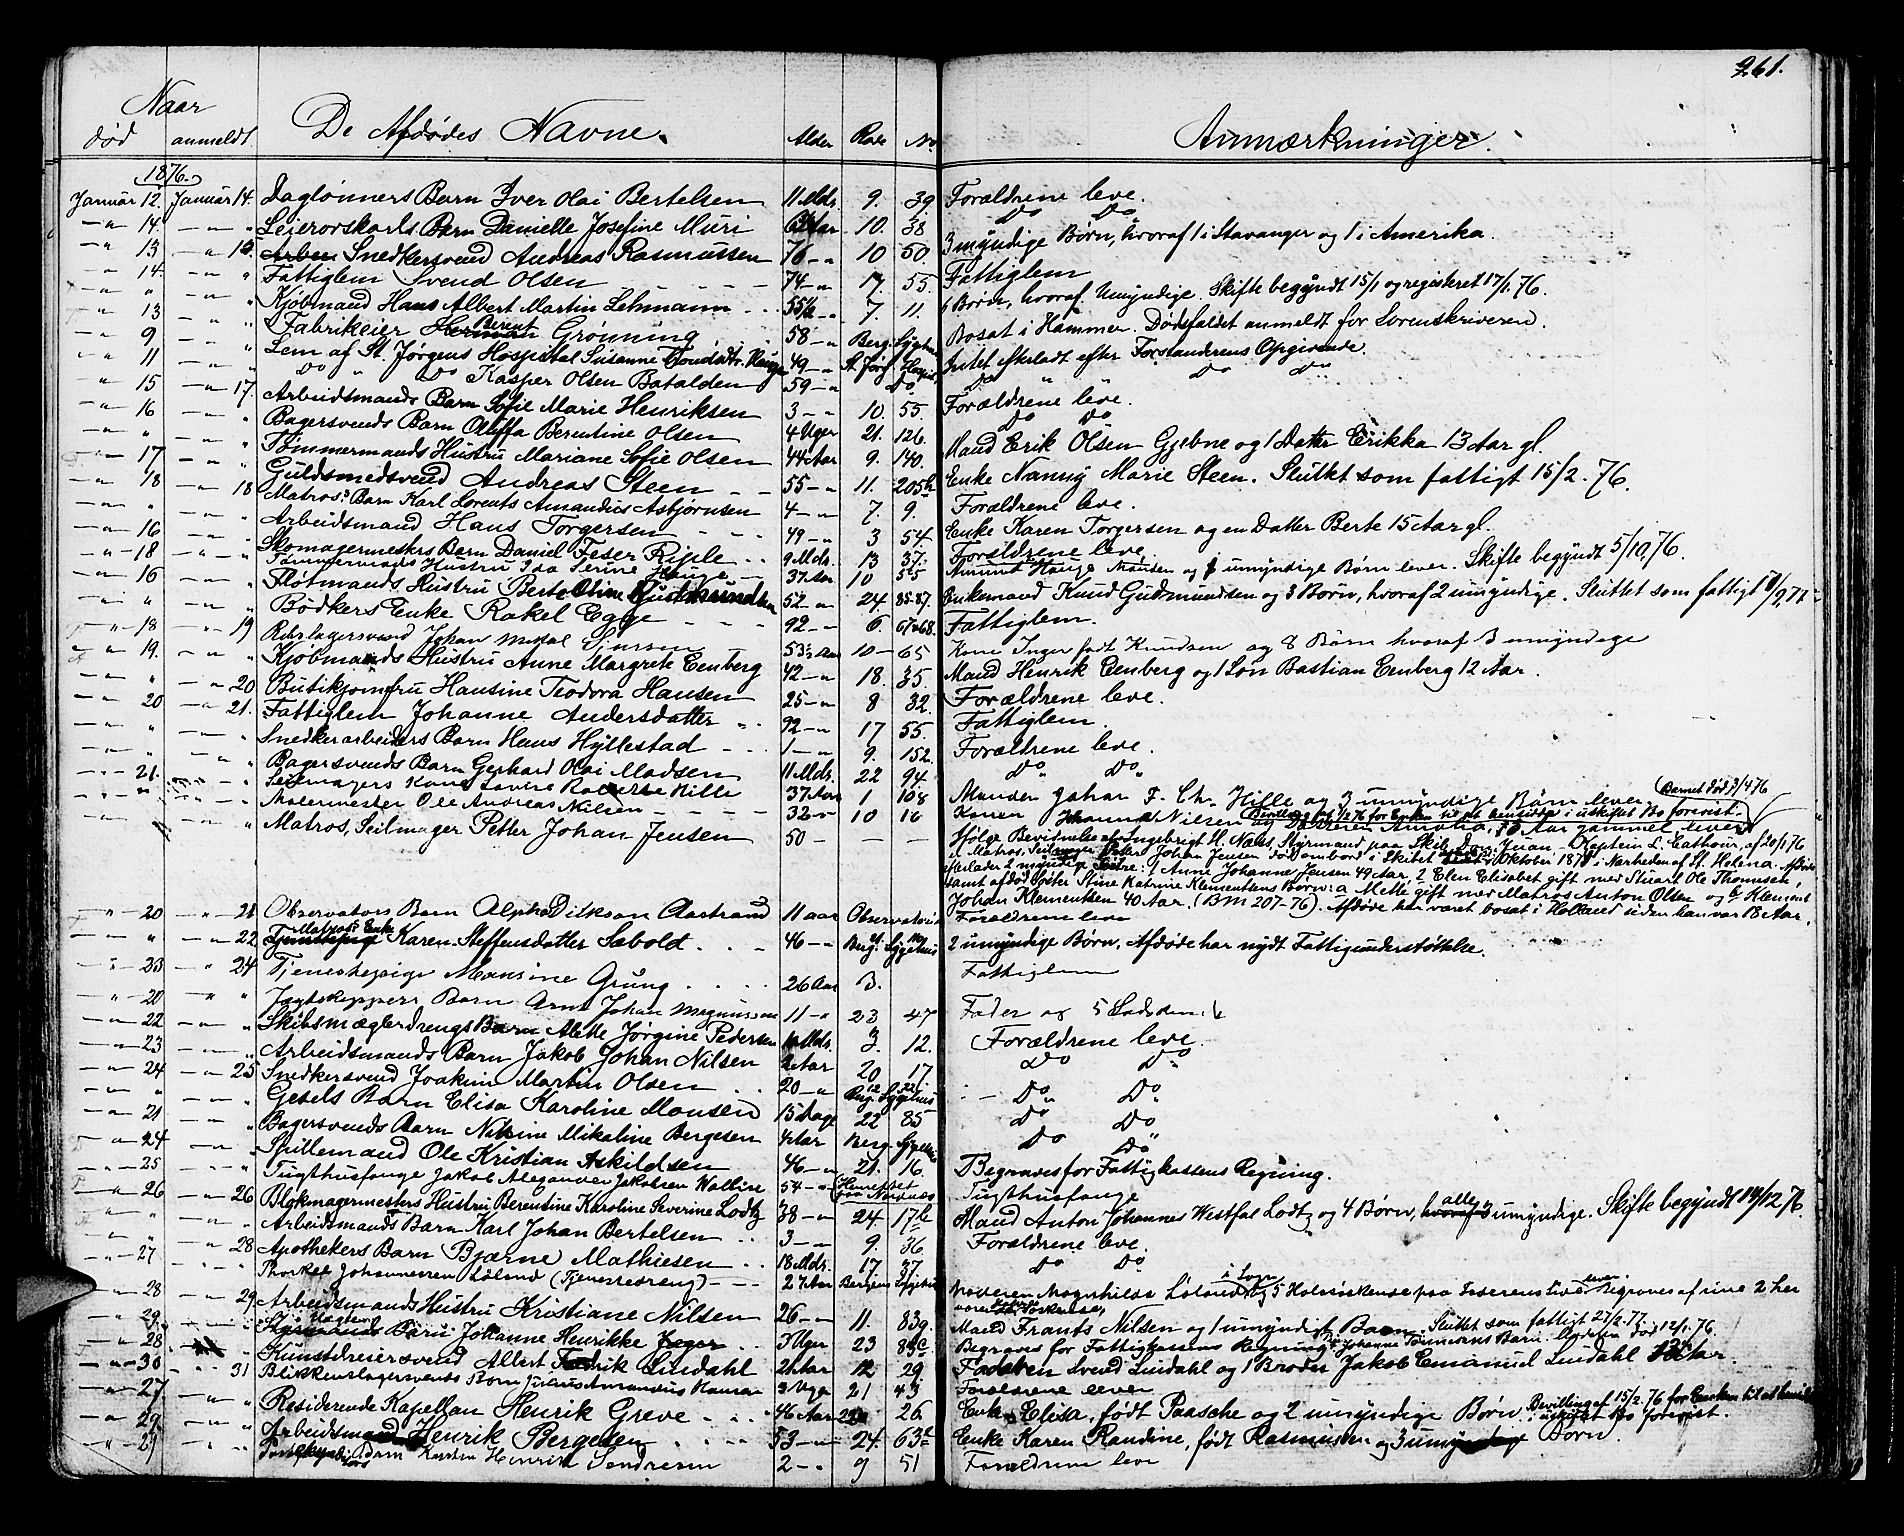 261.
Naar
død anmeldt De Afdødes Navne. Alder Rode No Anmærkninger.
1876.
Januar 12. Januar 14. Daglønners Barn Iver Olai Bertelsen 11 Mdr. 9. 39. Forældrene leve.
" 14. " " Leierorskarls Barn Danielle Josefine Muri Aar 10. 38 Do Do
" 13 " Snedkersvend Andreas Rasmussen 76 " 10 50. 3 myndige Børn, hvoraf 1 i Stavanger og 1 i Amerika.
" 14. " " Fattiglem Svend Olsen 74 " 17. 55. Fattiglem
" " " " Kjøbmand Hans Albert Martin Lehmann 55½ " 7. 11. 6 Børn, hvoraf Umyndige. Skifte begyndt 15/1 og registeret 17/1.76.
" 13 " " Fabrikeier Berent Grønning 58 " Berg. Sygehus Bosat i Hammer. Dødsfaldet anmeldt for Sorenskriveren.
" 9 " " Lem af St. Jørgens Hospital Susanne Tronds dtr. Hauge 49 " St. Jørg. Hospit. Intet efterladt efter Forstanderens Opgivende.
" 11 " " Do " Do Kasper Olsen Batalden 59 " Do Do " Do Do
" 15 " 17. Arbeidsmands Barn Sofie Marie Henriksen 3 " 10. 55. Forældrene leve.
" 16 " " Bagersvends Barn Oluffa Berentine Olsen 4 Uger 21. 126. Do Do
" " " " Tømmermands Hustru Mariane Sofie Olsen 44 Aar 9. 140. Mand Erik Olsen Gjebne og 1 Datter Erikka 13 Aar gl.
" 17 " " Guldsmedsvend Andreas Steen 55 " 11. 205b Enke Nansy Marie Steen. Sluttet som fattigt 15/2.76.
" 18 " 18 Matros's Barn Karl Lorents Amandius Asbjørnsen 4 " 7. 9. Forældrene leve.
" " " " Arbeidsmand Hans Torgersen 49 " 3 54. Enke Karen Torgersen og en Datter Berte 15 Aar gl.
" 16 " " Skomagermesters Barn Daniel Feser Riple 9 Mdr. 13 37. Forældrene leve.
" 18 " " Tømmermands Hustru Ida Serine Hauge 37 Aar 10 55 Amund Hauge Manden og umyndige Børn lever. Skifte begyndt 5/10.76.
" 16 " " Fløtmands Hustru Berte Oline Gudmundsen 52 " 24. 85-87. Enkemand Knud Gudmundsen og 3 Børn, hvoraf 2 umyndige. Sluttet som fattigt
" " " " Bødkers Enke Rakel Egge 92 " 6. 67 & 68. Fattiglem.
" 18 " 19 Rebslagersvend Johan Mikal 53½ Aar 10 65 Kone Inger født Knudsen og 8 Børn hvoraf 3 umyndige
" 19. " " Kjøbmands Hustru Anne Margrete Eenberg 42 " 18. 35. Mand Henrik Eenberg og 1 Søn Bastian Eenberg 12 Aar.
" " " 20 Butikjomfru Hansine Teodora Hansen 25 " 8 32. Forældrene leve.
" 20 " 21. Fattiglem Johanne Andersdatter 92 " 17 55. Fattiglem.
" " " " Snedkerarbeiders Barn Hans Hyllestad 1 " 9. 152. Forældrene leve.
" " " " Bagersvends Barn Gerhard Olai Madsen 11 Mdr. 22 94. Do Do
" 21. " " Seilmagers Kone Lovise Hille 37 Aar 1 108 Manden Johan F. Ch. Hille og 3 umyndige Børn lever (Barnet død 9/4 76
" " " " Malermester Ole Andreas Nilsen 32 " 10 16 Konen Hanna Nilsen og Datteren Amalia, Aar gammel, lever
Matros, Seilmager Petter Johan Jensen 50 Ifølge Bevidnelse af Ingebrigt H. Næss, Styrmand paa Skib Don Juan Kaptein L. Cathour, af 20/1 76
er Matros, Seilmager Petter Johan Jensen død ombord i Skibet Oktober 187 i Nærheden af St. Helena. Afdøde
efterlader 2 myndige Søstre: 1 Anne Johanne Jensen 49 Aar. 2 Elen Elisabet gift med Stuart Ole Thomesen,
samt afdød Søster Stine Katrine Klementsens Børn: a Mette gift med Matros Anton Olsen og b Klement
Johan Klementsen 40 Aar. (BM 207-76). Afdøde har været bosat i Holland siden han var 18 Aar.
" 20 " 21 Observators Barn Alpha Dikson Aastrand 11 aar Observatoriet Forældrene leve
" " " 22 Matros's Enke Karen Steffensdatter Sæbold 46 " Berg. Sygehus 2 umyndige Børn, Afdøde har nydt Fattigunderstøttelse.
" 23 " 24 Tjenestepige Monsine Grung 26 Aar B. Fattiglem
" 20 " " Jagtskippers Barn Arne Johan Magnussen 11 " 23 47 Fader og 5 Sødsken
" 22 " " Skibsmæglerdrengs Barn Alette Jørgine Pedersen Mdr. 3. 12. Forældrene leve.
" 23 " " Arbeidsmands Barn Jakob Johan Nilsen 2 Aar 20 17 Do Do
" 24 " 25 Snedkersvend Joakim Martin Olsen 20 " Berg. Sygehus Do Do
" " " " Gesels Barn Elisa Karoline Monsen 15 Dage 22 85 Do Do
" 21 " " Bagersvends Barn Nikoline Mikaline Bergesen 4 Aar Berg. Sygehus Do Do
" 24 " " Spillemand Ole Kristian Askildsen 46 " 21. 16. Begraves for Fattigkassens Regning.
" 25 " " Tugthusfange Jakob Alexander Jakobsen Wallin 54 " Henrettet paa Nordnæs Tugthusfange
" 26 " 26 Blokmagermesters Hustru Berentine Karoline Severine Lodtz 38 " 24. 17b Mand Anton Johannes Westfal Lodtz og 4 Børn, alle umyndige. Skifte begyndt 14/12.76.
" " " " Arbeidsmands Barn Karl Johan Bertelsen 3 " 9. 36 Forældrene leve.
" " " 28 Apothekers Barn Bjarne Mathiesen 18 Mdr. 17 37. Do Do
" 27 " " Thorkel Johannessen Lølund (Tjenestedreng) 27 Aar Bergens Sygehus Moderen Magnhilde Lølund i Sogn og 5 Halvsøskende paa Faderens Side lever Begraves af sine 2 her
værende Søskende,
" 28 " 29. Arbeidsmands Hustru Kristiane Nilsen 26 " 11. 83g. Mand Frants Nilsen og 1 umyndigt Barn. Sluttet som fattigt 27/2-77.
" 29. " " Barn Johanne Henrikke 3 Uger 23 Begraves for Fattigkassens Regning.
" 28 " " Kunstdreiersvend Albert Fredrik Lindahl Aar 12 29 Faderen Svend Lindahl og 1 Broder Jakob Emanuel Lindahl Aar.
" 30 " 31 Blikkenslagersvends Barn Julius Amandus Hansen 3 Uger 21 43 Forældrene lever
" 27 " " Residerende Kapellan Henrik Greve 46 Aar 26. Enke Elisa, født Paasche og 2 umyndige Børn. Bevilling af 15/2.76 for Enken til at hensidde i uskiftet Bo forevist.
" 29 " " Arbeidsmand Henrik Bergesen 53 " 24. 63c Enke Karen Randine, født Rasmussen og 3 umyndige Børn.
" 29 " " Barn Karsten Henrik Sendresen 2 " 9 51 Forældrene leve